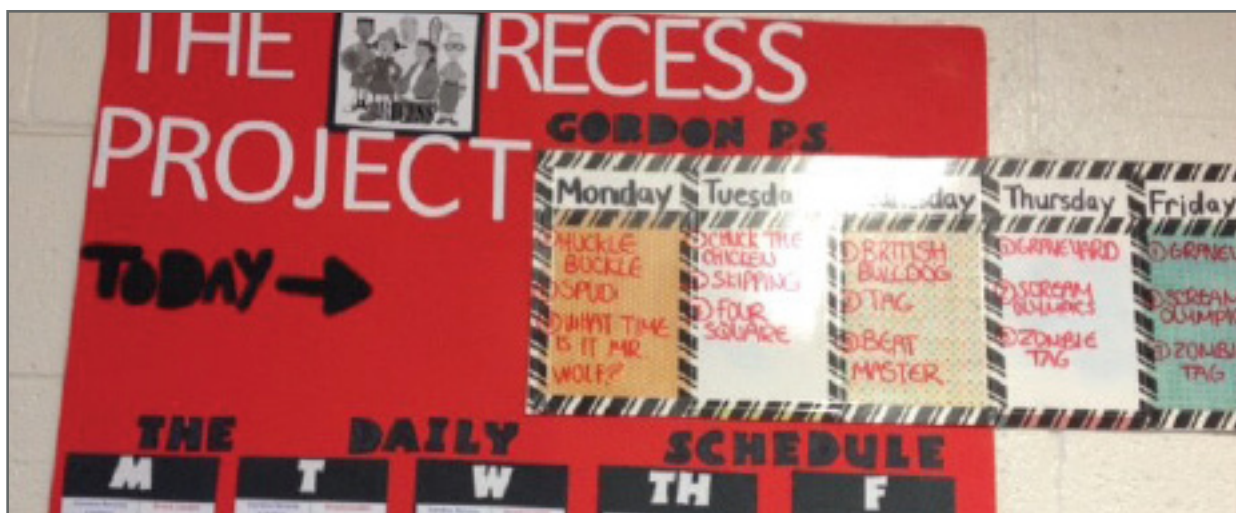 THE RECESS
RECESS
PROJECT
GORDON P.S.
TODAY →
Monday
① HUCKLE
BUCKLE
② SPUD!
③ WHAT TIME
IS IT MR.
WOLF?
Tuesday
① CHUCK THE
CHICKEN
② SKIPPING
③ FOUR
SQUARE
① BRITISH
BULLDOG
② TAG
③ BEAT
MASTER
Thursday
① GRAVEYARD
② SCREAM
OLYMPICS
③ ZOMBIE
TAG
Friday
① GRAVEY
② SCREAM
OLYMPIC
③ ZOMBI
TAG
THE DAILY SCHEDULE
M T W TH F